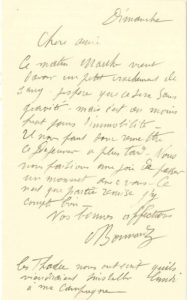 Dimanche
Cher ami
Ce matin Marthe vient
d'avoir un petit crachement de
sang. J'espère que ce sera sans
gravité mais c'est au moins
pour l'immobilité
Il nous faut donc remettre
ce déjeuner à plus tard. Nous
nous faisions une joie de passer
un moment avec vous. Ce
n'est que partie remise j'y
compte bon
Vos bonnes affections
Bonnard
Les Thadée nous ont écrit qu'ils
viendraient s'installer
à ma campagne